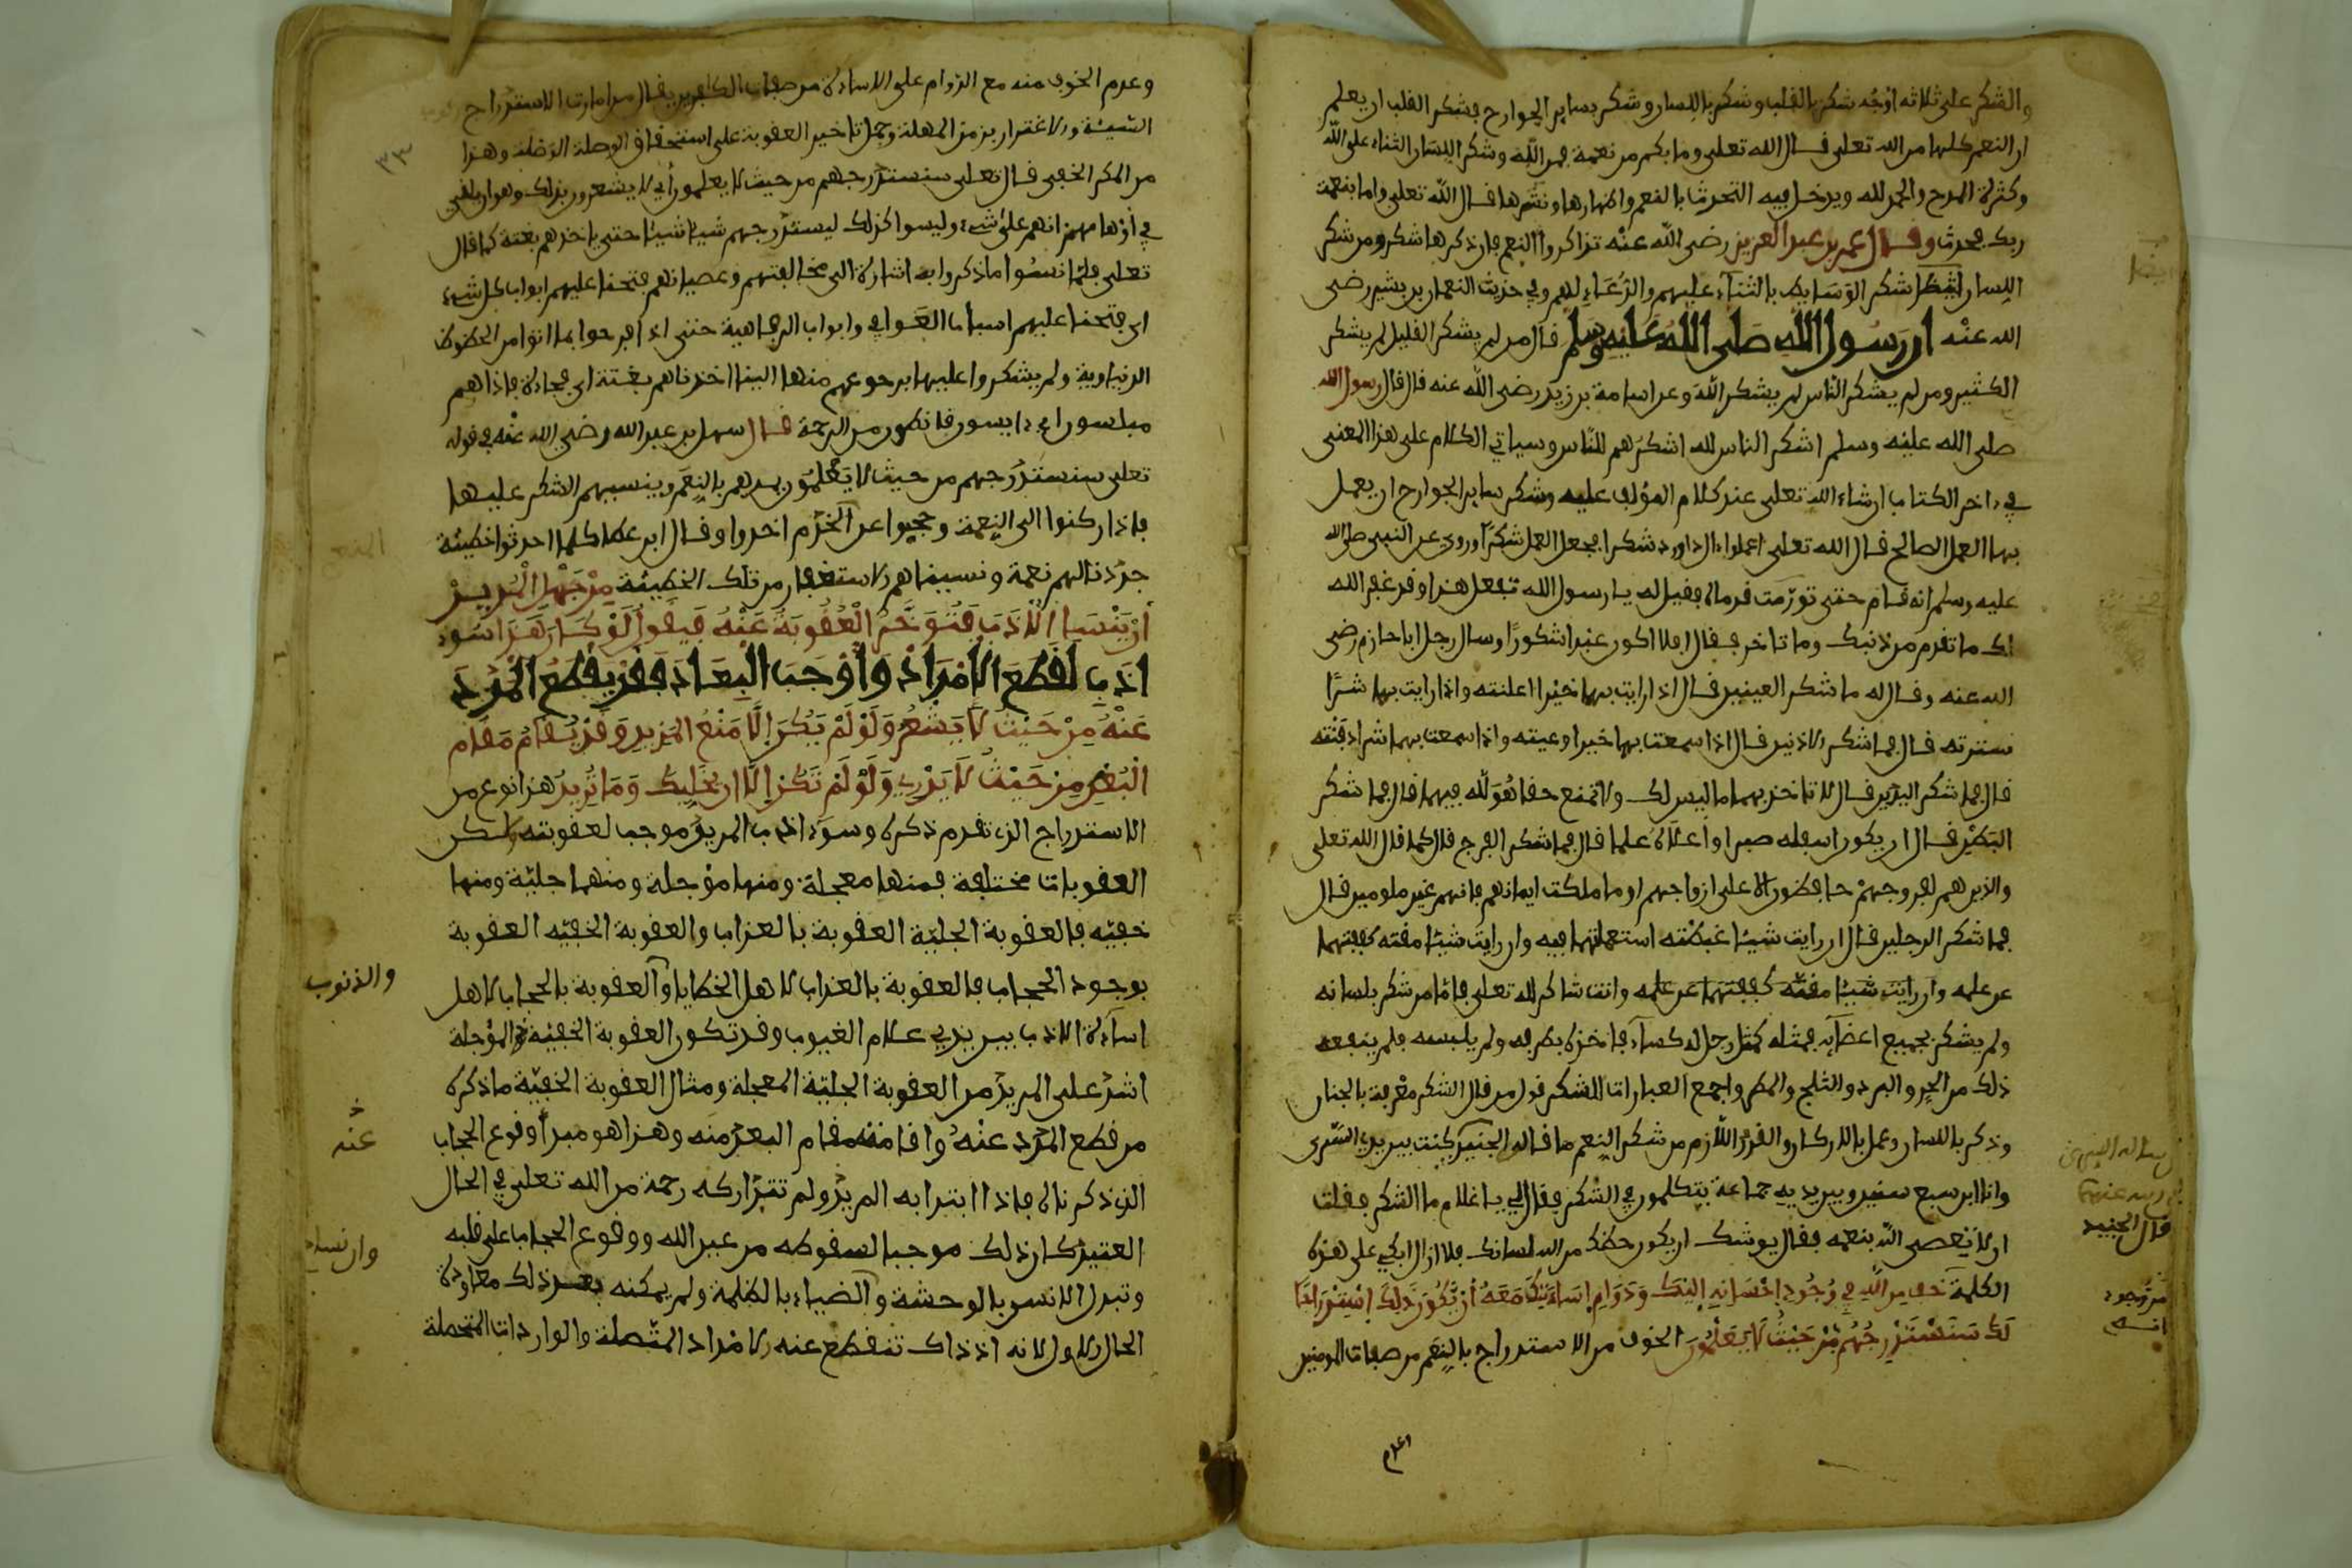 والشكر على ثلاثة اوجه شكر بالقلب وشكر باللسان وشكر بساير الجوارح فشكر القلب ان يعلم
ان النعم كلها من الله تعلى قال الله تعلى وما بكم من نعمة فمن الله وشكر اللسان الثناء على الله
وكثرة المدح والحمد لله ويدخل فيه التحدث بالنعم واظهارها ونشرها قال الله تعلى واما بنعمة
ربك فحدث وقال عمر بن عبد العزيز رضي الله عنه تذاكروا النعم فان ذكرها شكر ومن شكر
اللسان ايضا شكر الوسايط بالثناء عليهم والدعاء لهم وفي حديث النعمان بن بشير رضي
الله عنه ان رسول الله صلى الله عليه وسلم قال من لم يشكر القليل لم يشكر
الكثير ومن لم يشكر الناس لم يشكر الله وعن اسامة بن زيد رضي الله عنه قال قال رسول الله
صلى الله عليه وسلم اشكر الناس لله اشكرهم للناس وسياتي الكلام على هذا المعنى
في ءاخر الكتاب ان شاء الله تعلى عند كلام المؤلف عليه وشكر ساير الجوارح ان يعمل
بها العمل الصالح قال الله تعلى اعملوا ءال داوود شكرا فجعل العمل شكرا وروي عن النبي صلى الله
عليه وسلم انه قام حتى تورمت قدماه فقيل له يا رسول الله تفعل هذا وقد غفر الله
لك ما تقدم من ذنبك وما تاخر فقال افلا اكون عبدا شكورا وسال رجل ابا حازم رضي
الله عنه وقال له ما شكر العينين قال اذا رايت بهما خيرا اعلنته واذا رايت بهما شرا
سترته قال فما شكر الاذنين قال اذا سمعت بهما خيرا وعيته واذا سمعت بهما شرا دفنته
قال فما شكر اليدين قال لا تاخذ بهما ما ليس لك ولا تمنع حقا هو لله فيهما قال فما شكر
البطن قال ان يكون اسفله صبرا واعلاه علما قال فما شكر الفرج قال كما قال الله تعلى
والذين هم لفروجهم حافظون الا على ازواجهم او ما ملكت ايمانهم فانهم غير ملومين قال
فما شكر الرجلين قال ان رايت شيئا غبطته استعملتهما فيه وان رايت شيئا مقته كففتهما
عن عمله وان رايت شيئا مقته كففتهما عن عمله وانت شاكر لله تعلى فاما من شكر بلسانه
ولم يشكر بجميع اعضايه فمثله كمثل رجل له كساء فاخذه بطرفه ولم يلبسه فلم ينفعه
ذلك من الحر والبرد والثلج والمطر واجمع العبارات للشكر قول من قال الشكر معرفة بالجنان
وذكر باللسان وعمل بالاركان والقدر اللازم من شكر النعم ما قاله الجنيد كنت بين يدي السري
وانا ابن سبع سنين وبين يديه جماعة يتكلمون في الشكر فقال لي يا غلام ما الشكر فقلت
ان لا يعصى الله بنعمه فقال يوشك ان يكون حظك من الله لسانك فلا ازال ابكي على هذه
الكلمة خف من الله في وجود احسانه اليك ودوام اساءتك معه ان يكون ذلك استدراجا
لك سنستدرجهم من حيث لا يعلمون الخوف من الاستدراج بالنعم من صفات المومنين
قال الجنيد
من وجود
وعدم
وعدم الخوف منه مع الدوام على الاساءة من صفات الكافرين يقال من امارت الاستدراج
السيئة والاغترار بزمن المهلة وحمل تاخير العقوبة على استحقاق الوصلة وهذا
من المكر الخفي قال تعلى سنستدرجهم من حيث لا يعلمون اي لا يشعرون بذلك وهو ان يلقي
في اوهامهم انهم على شيء وليسوا كذلك ليستدرجهم شيئا شيئا حتى ياخذهم بغتة كما قال
تعلى فلما نسوا ما ذكروا به اشارة الى مخالفتهم وعصيانهم فتحنا عليهم ابواب كل شيء
اي فتحنا عليهم اسباب العوافي وابواب الرفاهية حتى اذا فرحوا بما اوتوا من الحظوظ
الدنياوية ولم يشكروا عليها برجوعهم منها الينا اخذناهم بغتة اي فجاءة فاذا هم
مبلسون اي ءايسون قانطون من الرحمة قال سهل بن عبد الله رضي الله عنه في قوله
تعلى سنستدرجهم من حيث لا يعلمون يمدهم بالنعم وينسيهم الشكر عليها
فاذا ركنوا الى النعمة وحجبوا عن المنعم اخذوا وقال ابن عطا كلما احدثوا خطيئة
جددنا لهم نعمة ونسيناهم الاستغفار من تلك الخطيئة من جهل المريد
ان يسيء الادب فتؤخر العقوبة عنه فيقول لو كان هذا سوء
ادب لقطع الامداد واوجب البعاد فقد يقطع المدد
عنه من حيث لا يشعر ولو لم يكن الا منع المزيد وقد يقام مقام
البعد من حيث لا يدري ولو لم تكن الا ان يخليك وما تريد هذا نوع من
الاستدراج الذي تقدم ذكره وسوء ادب المريد موجب لعقوبته لكن
العقوبات مختلفة فمنها معجلة ومنها مؤجلة ومنها جلية ومنها
خفية فالعقوبة الجلية العقوبة بالعذاب والعقوبة الخفية العقوبة
بوجود الحجاب فالعقوبة بالعذاب لاهل الخطايا والعقوبة بالحجاب لاهل
والذنوب
اساءة الادب بين يدي علام الغيوب وقد تكون العقوبة الخفية المؤجلة
اشد على المريد من العقوبة الجلية المعجلة ومثال العقوبة الخفية ما ذكره
من قطع المدد عنه واقامته مقام البعد منه وهذا هو مبدأ وقوع الحجاب
عنه
الذي ذكرناه فاذا ابتدا به المريد ولم تتداركه رحمة من الله تعلى في الحال
العتيد كان ذلك موجبا لسقوطه من عبد الله ووقوع الحجاب على قلبه
وتبدل الانس بالوحشة والضياء بالظلمة ولم يمكنه بعد ذلك معاودة
الحال الاول لانه اذ ذاك تنقطع عنه الامداد المتصلة والواردات المتحصلة